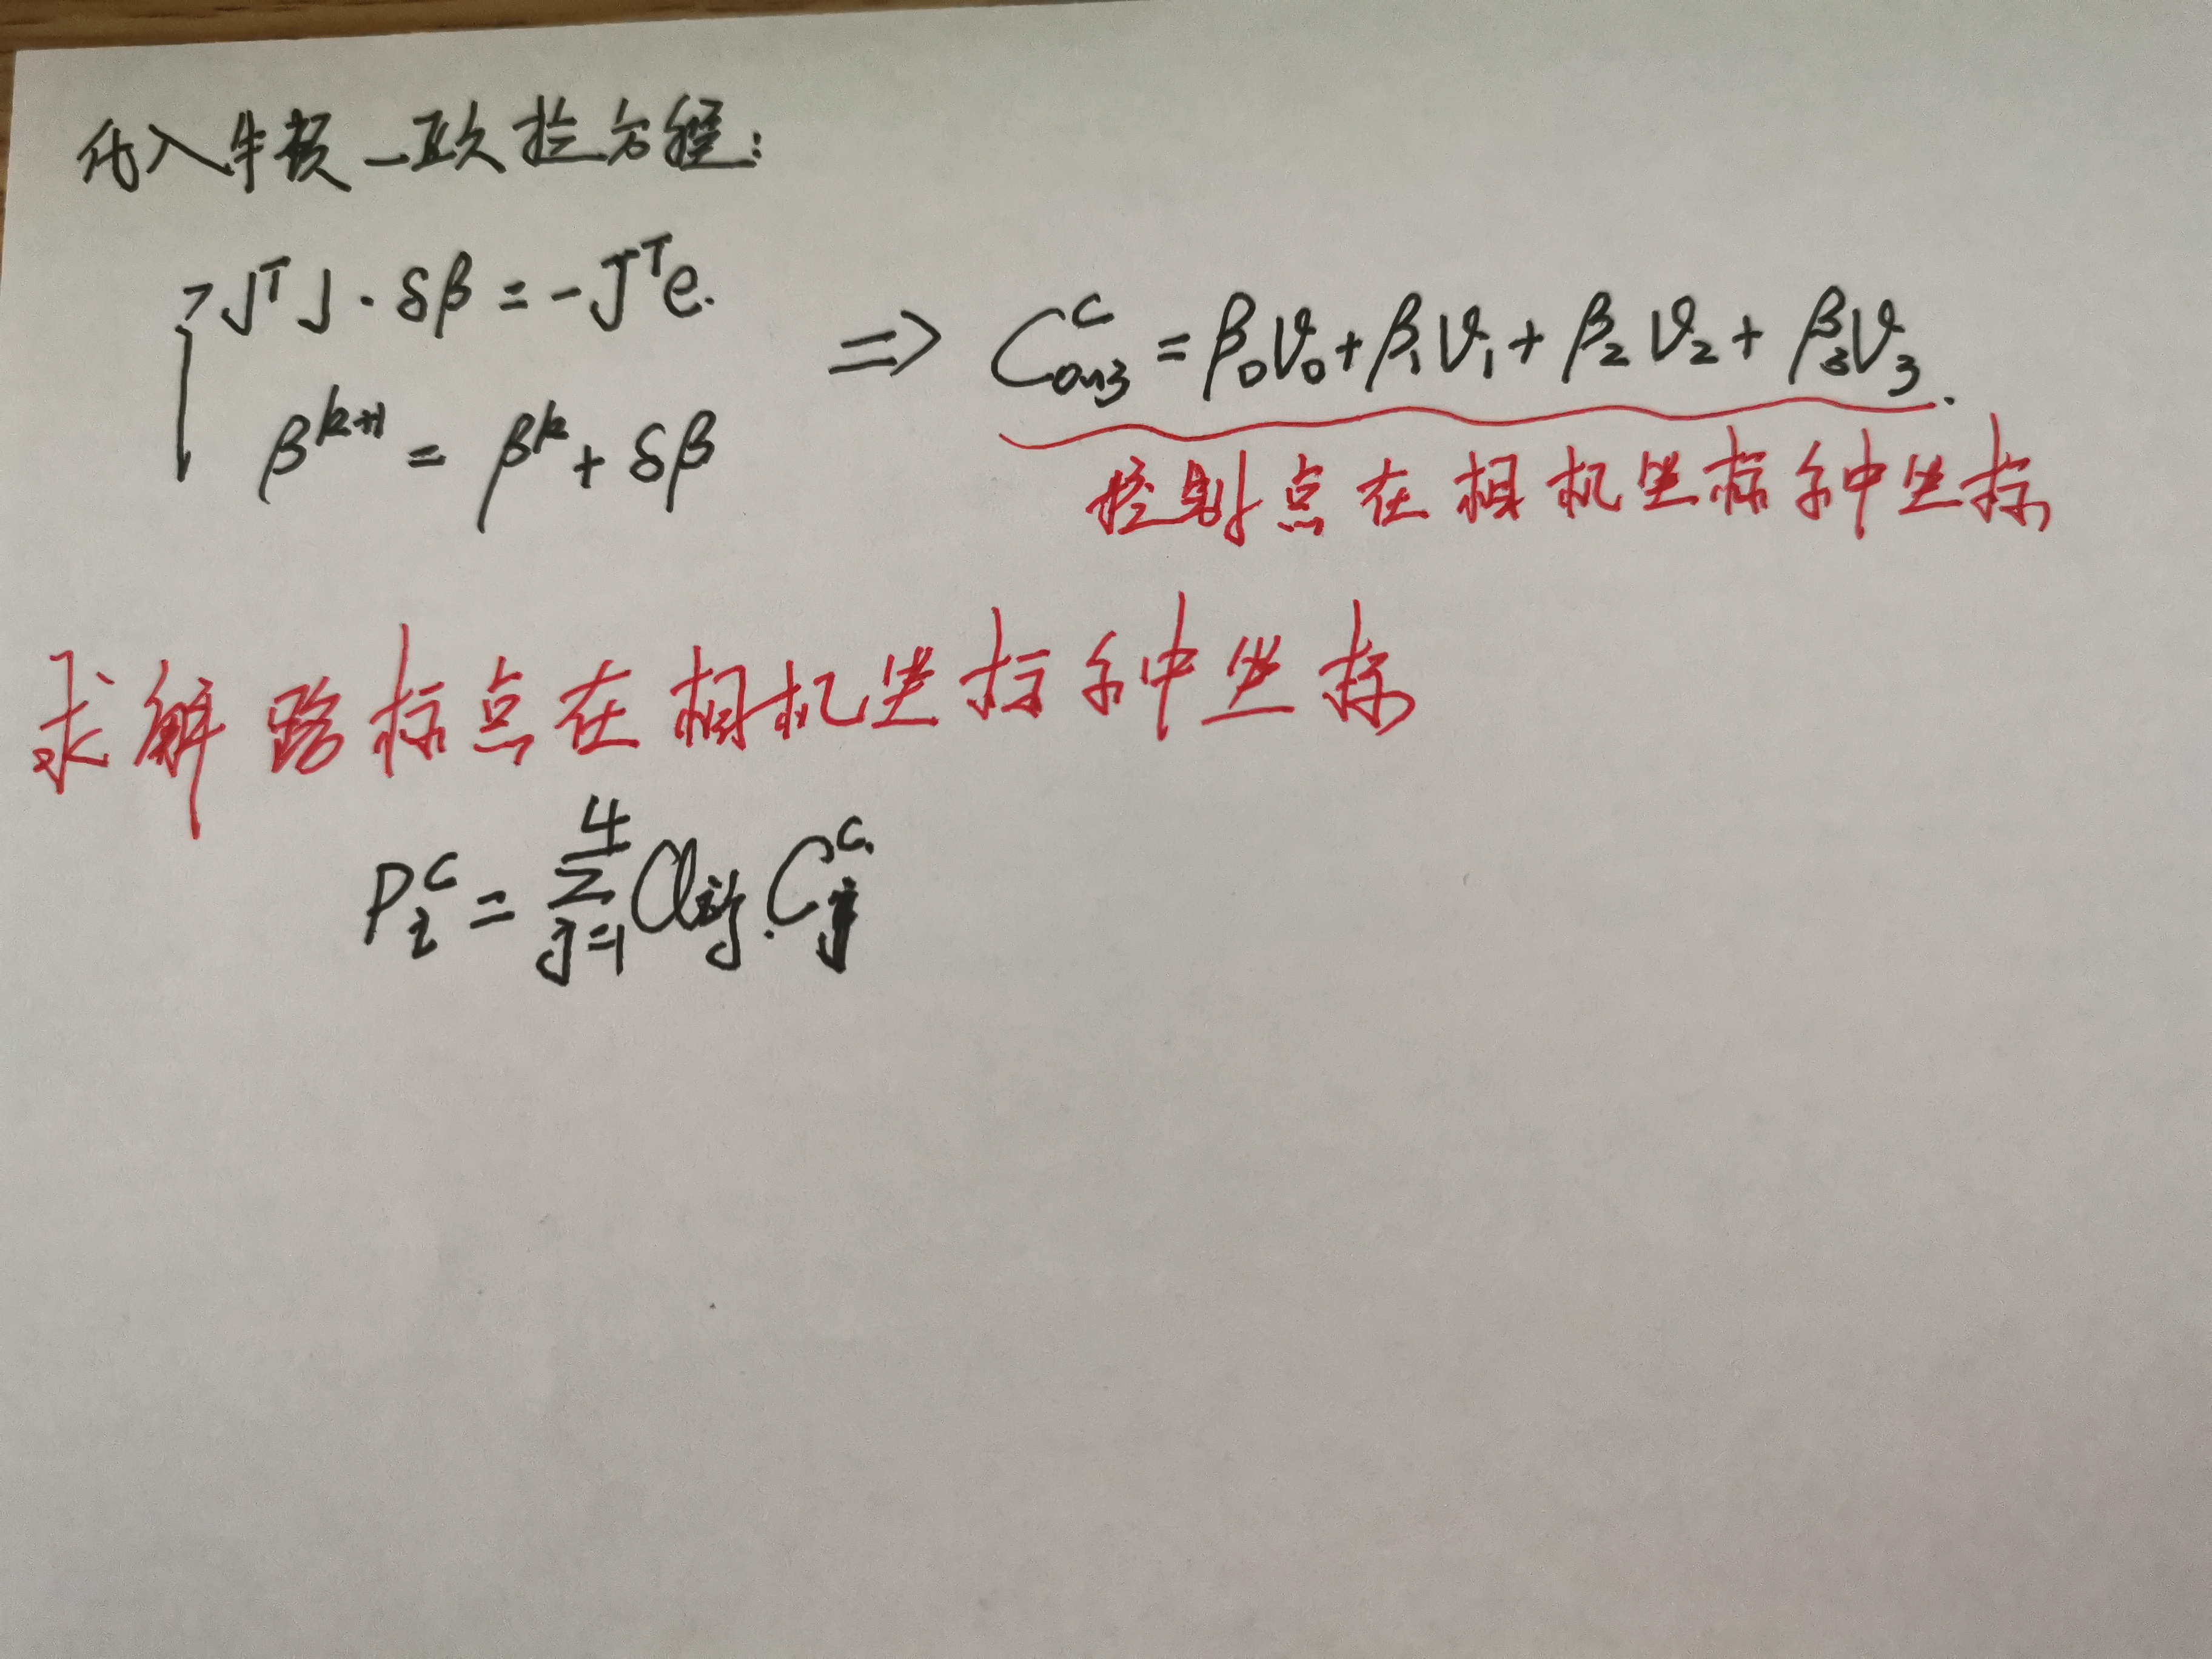 代入牛顿一欧拉方程:
JᵀJ·δβ=-Jᵀe.
βᵏ⁺¹=βᵏ+δβ
⇒ C^c_{0~3}=β₀V₀+β₁V₁+β₂V₂+β₃V₃.
控制点在相机坐标系中坐标
求解路标点在相机坐标系中坐标
P_i^c=∑_{j=1}^{4}a_{ij}·C_j^c